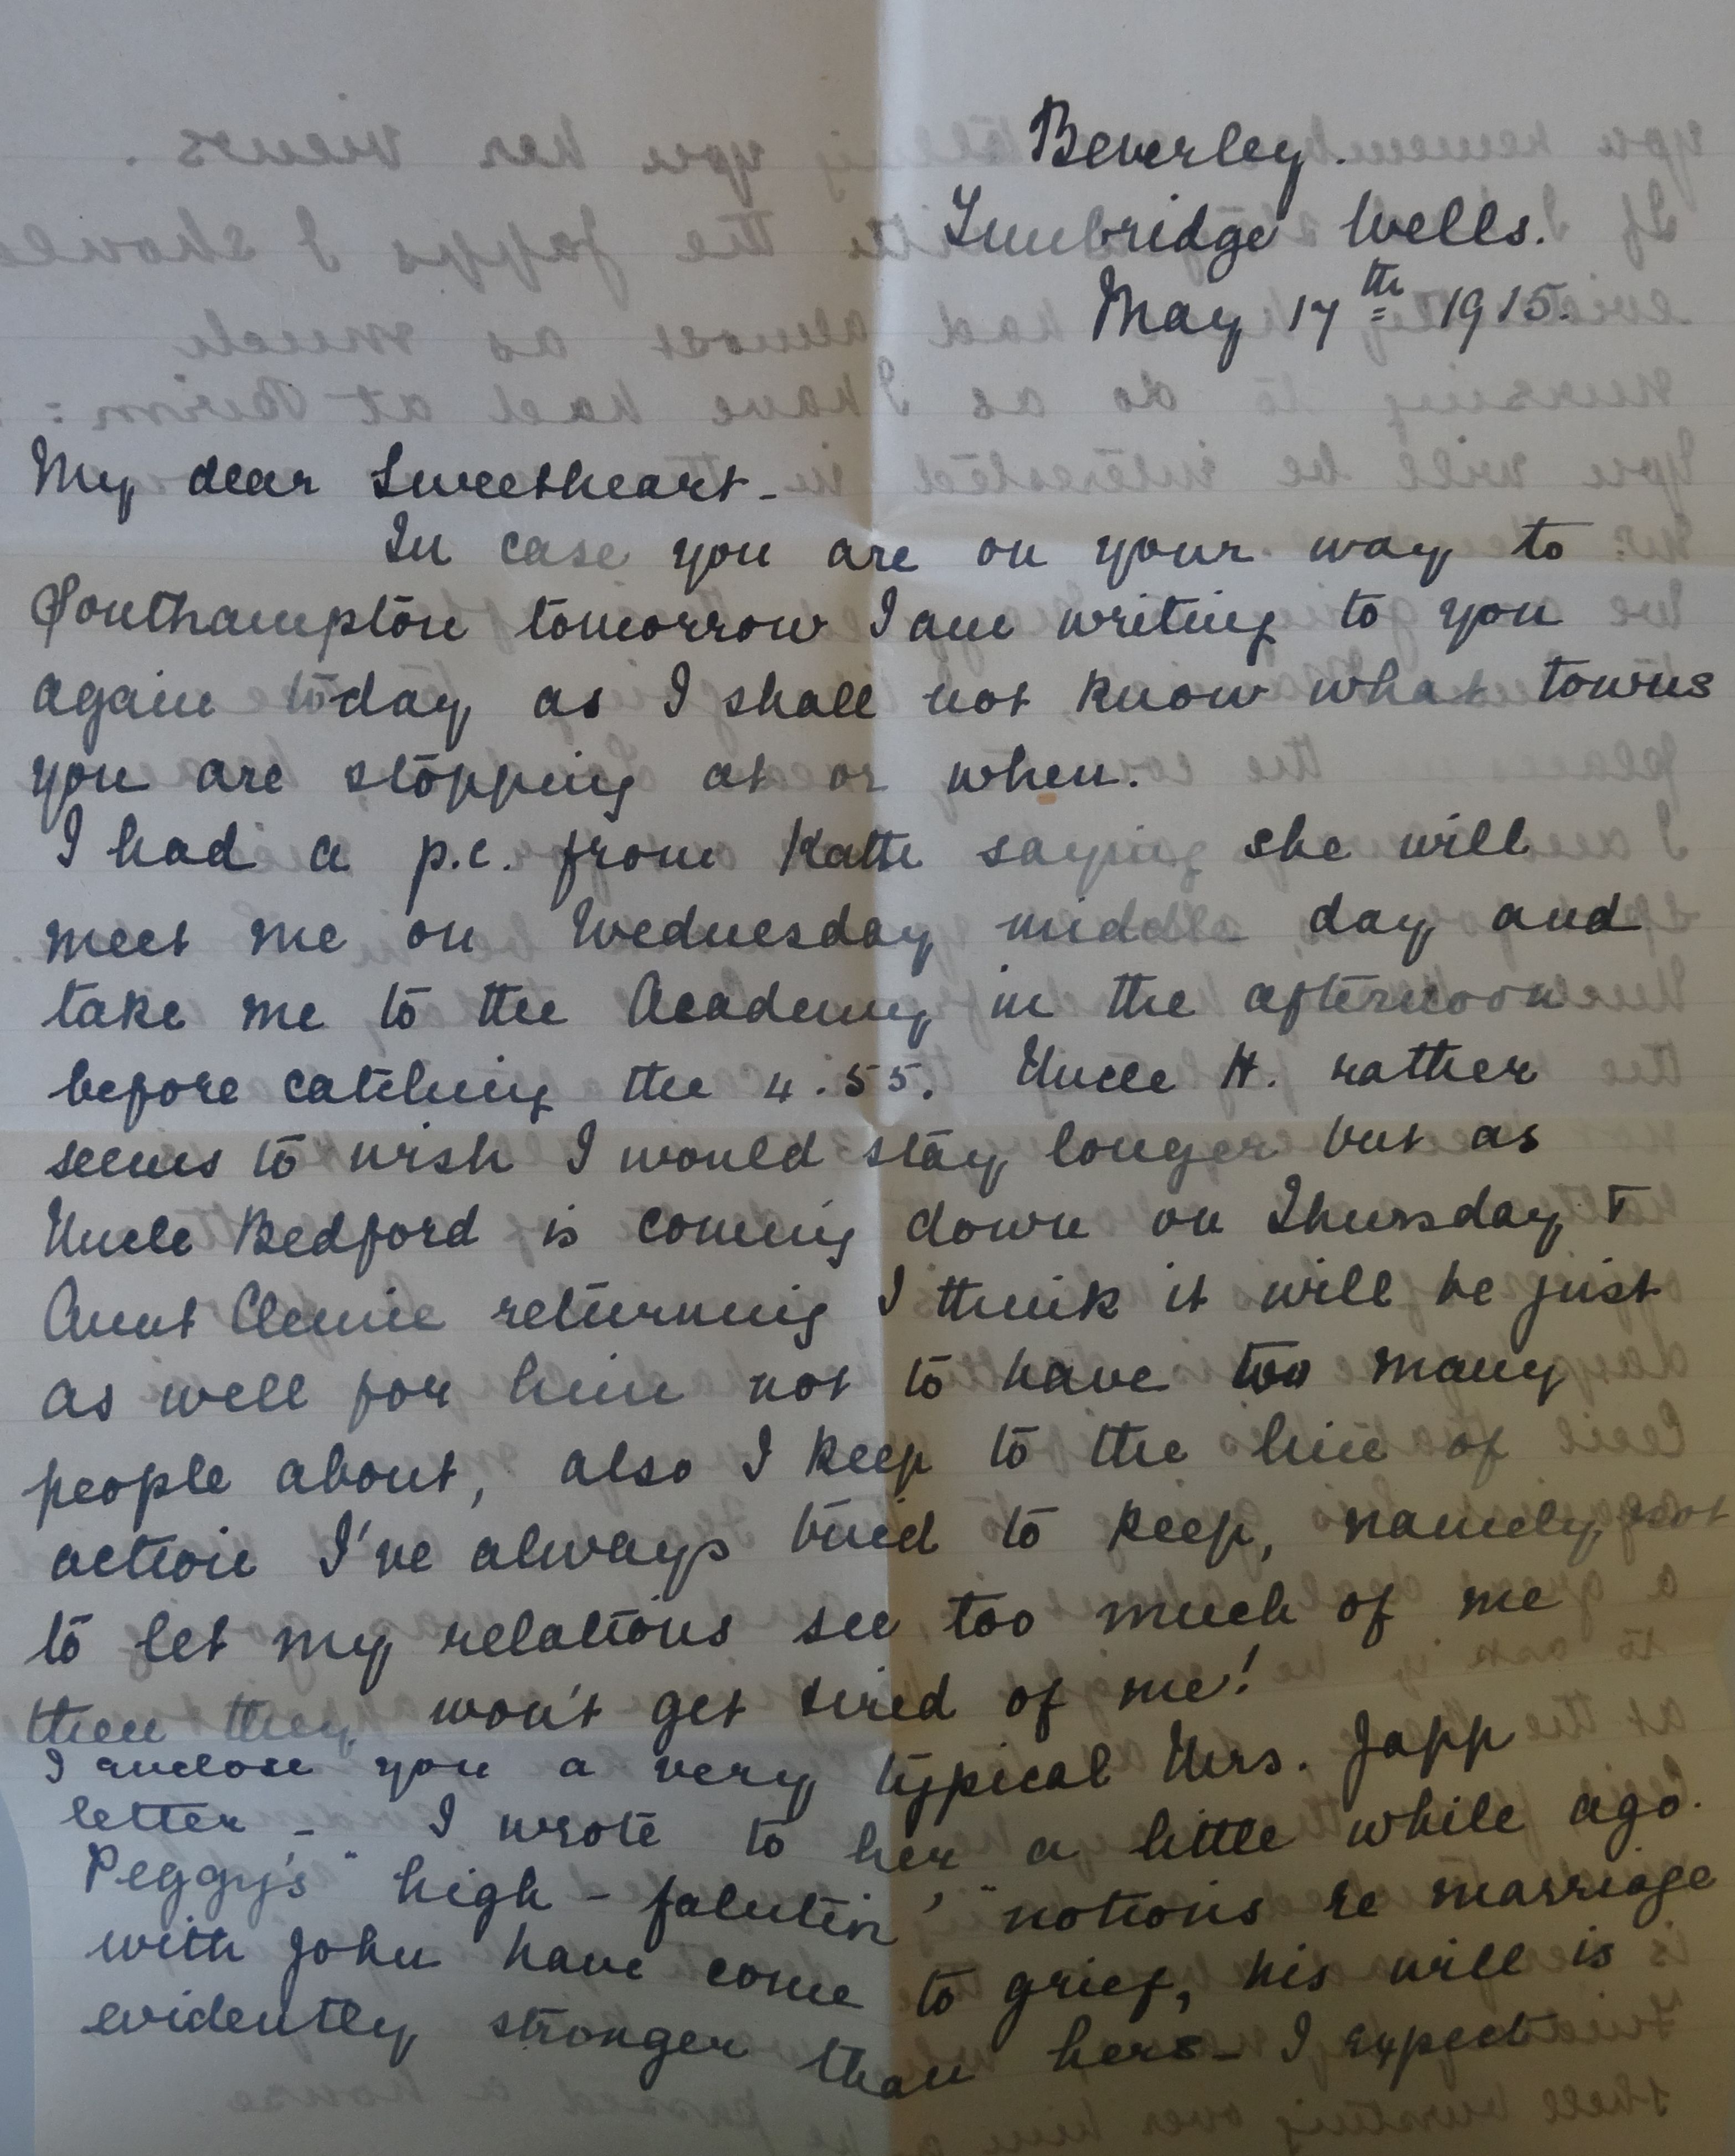 Beverley.
Tunbridge Wells.
May 17th 1915.
My dear Sweetheart -
In case you are on your way to
Southampton tomorrow I am writing to you
again today as I shall not know what towns
you are stopping at or when.
I had a p.c. from Katti saying she will
meet me on Wednesday middle day and
take me to the Academy in the afternoon
before catching the 4.55. Uncle H. rather
seems to wish I would stay longer but as
Uncle Bedford is coming down on Thursday &
Aunt Clemie returning I think it will be just
as well for him not to have too many
people about, also I keep to the line of
action I've always tried to keep, namely not
to let my relations see too much of me
then they won't get tired of me!
I enclose you a very typical Mrs. Japp
letter - I wrote to her a little while ago.
Peggy's "high-falutin'" notions re marriage
with John have come to grief, his will is
evidently stronger than hers - I expect